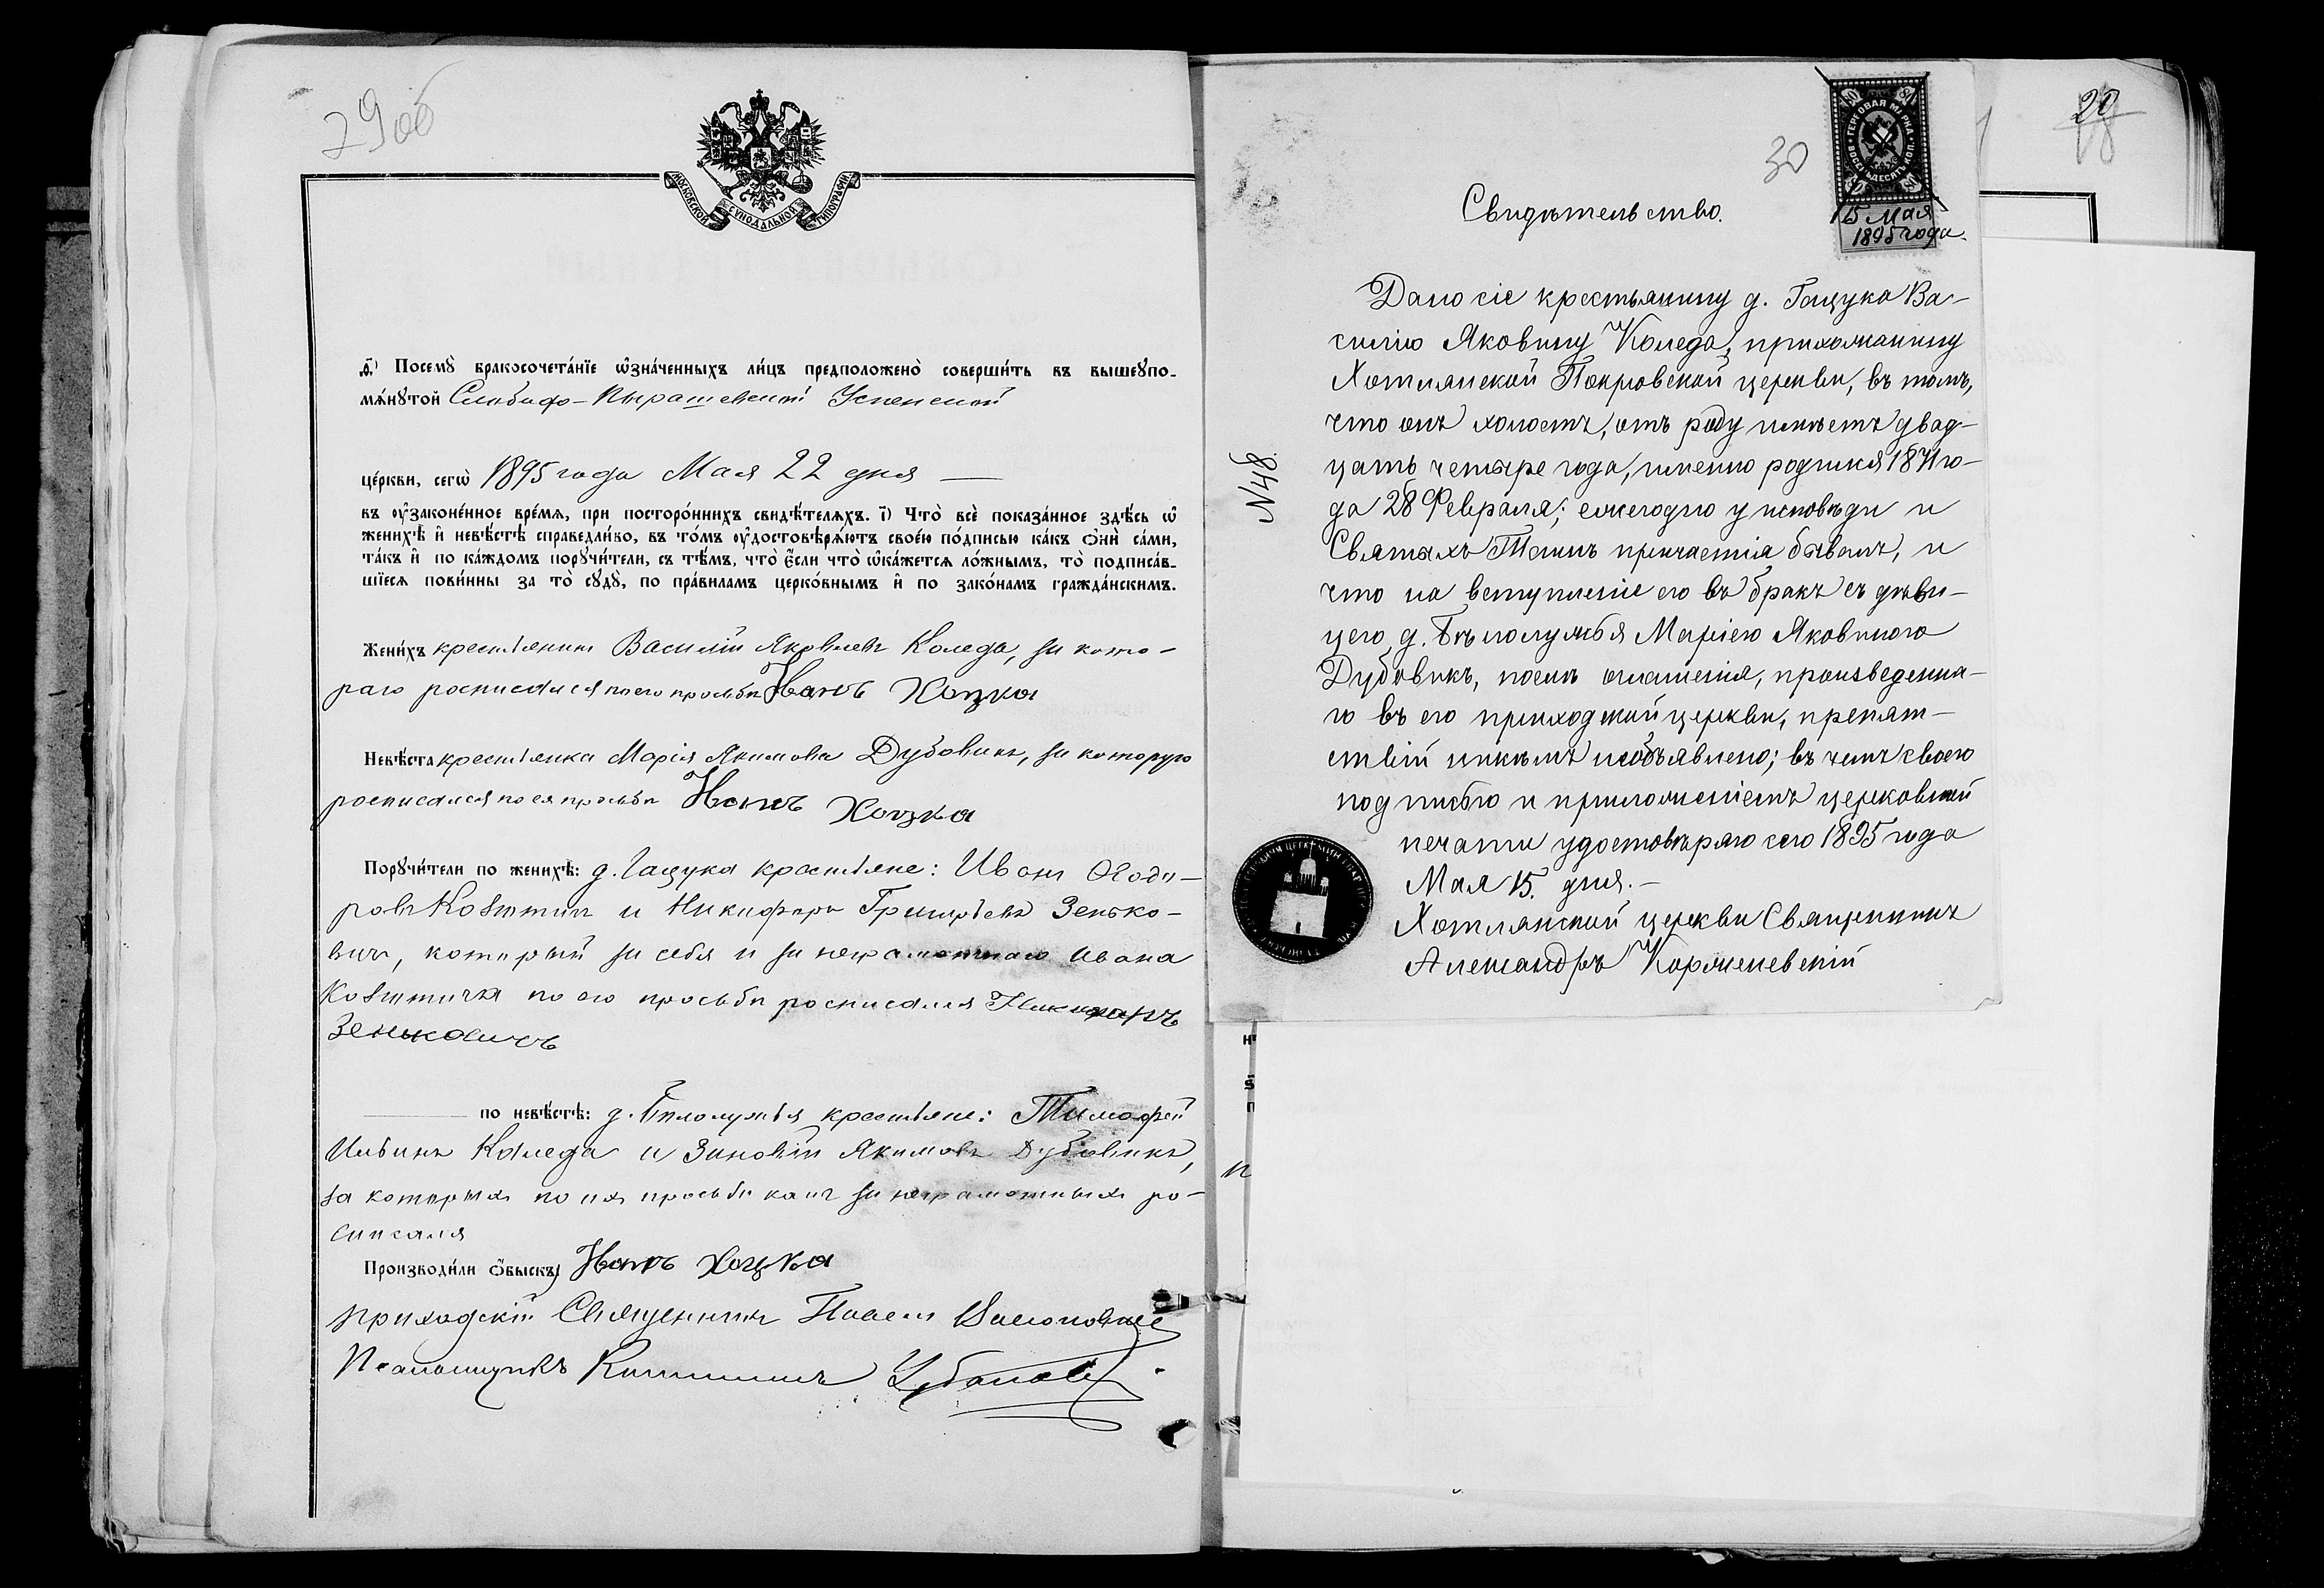 29об
МОСКОВСКОЙ СѴНОДАЛЬНОЙ ТИПОГРАФІИ
Посемꙋ̀ бракосочета́нїе ѡ҆зна́ченныхъ ли́цъ предположено̀ соверши́ть въ вышеꙋпо-
мѧ́нꙋтой Слободо-Кырашевской Успенской
це́ркви, сегѡ̀ 1895 года Мая 22 дня —
въ ᲂу҆зако́не́нное вре́мѧ, при посторо́ннихъ свидѣ́телѧхъ. і҃) Что̀ всѐ показа́нное здѣ́сь ѡ҆
женихѣ̀ и҆ невѣ́стѣ справедли́во, въ то́мъ ᲂу҆достовѣрѧ́ютъ свое́ю по́дписью ка́къ ѻ҆нѝ са́ми,
та́къ и҆ по ка́ждомъ порꙋчи́тели, съ тѣ́мъ, что̀ є҆́сли что̀ ѡ҆ка́жетсѧ ло́жнымъ, то̀ подписа́в-
шїесѧ пови́нны за то̀ сꙋдꙋ̀, по пра́виламъ церко́внымъ и҆ по зако́намъ гражда́нскимъ.
Жени́хъ крестьянинъ Василій Яковлевъ Коледа, за кото-
раго росписался по его просьбѣ Иванъ Хоцка
Невѣ́ста крестьянка Марія Якимова Дубовикъ, за которую
росписался по ея просьбѣ Иванъ Хоцка
Порꙋчи́тели по женихѣ̀: д. Гацука крестьяне: Иванъ Ѳеодо-
ровъ Ковтичъ и Никифоръ Григорьевъ Зенько-
вичъ, который за себя и за неграмотнаго Ивана
Ковтича по его просьбѣ росписался Никифаръ
Зеньковичъ
по невѣ́стѣ: д. Бѣлолужья крестьяне: Тимофей
Ильинъ Коледа и Зиновій Якимовъ Дубовикъ,
за которыхъ по ихъ просьбѣ какъ за неграмотныхъ ро-
списался
Производи́ли ѻ҆́быскъ Иванъ Хоцка
приходскій Священникъ Павелъ
Псаломщикъ
20
18
30
ГЕРБОВАЯ МАРКА ВОСЕМЬДЕСЯТЪ КОП.
80
15 мая
1895 года.
Свидѣтельство.
Дано сіе крестьянину д. Гацука Ва-
силію Яковину Коледа, прихожанину
Хотлянской Покровской церкви, въ томъ,
что онъ холостъ, отъ роду имѣетъ двад-
цать четыре года, именно родился 1871 го-
да 28 Февраля; ежегодно у исповѣди и
Святыхъ Таинъ причастія бываетъ, и
что на вступленіе его въ бракъ съ дѣви-
цею д. Бѣлолужья Маріею Яковиною
Дубовикъ, послѣ оглашенія, произведенна-
го въ его приходской церкви, препят-
ствій никѣмъ необъявлено; въ чемъ своею
подписью и приложеніемъ церковной
печати удостовѣряю сего 1895 года
Мая 15. дня. —
Хотлянской церкви Священникъ
Александръ
N48.